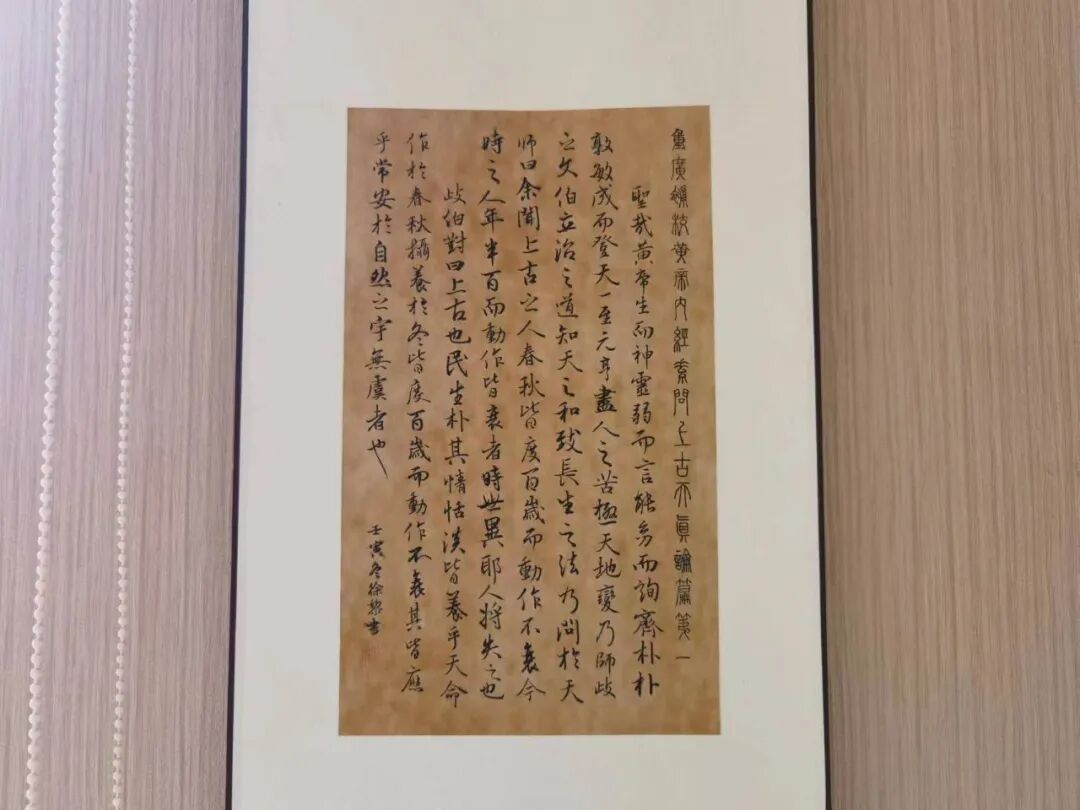 廣嶺校黃帝內經素問上古天眞論篇第一
聖哉黃帝生而神靈弱而言能幼而詢齊朴朴
敦敏成而登天一至元亨盡人之苦極天地變乃師歧
之文伯立治之道知天之和致長生之法乃問於天
師曰余聞上古之人春秋皆度百歲而動作不衰今
時之人年半百而動作皆衰者時世異耶人將失之也
歧伯對曰上古也民生朴其情恬淡皆養乎天命
作於春秋攝養於冬皆度百歲而動作不衰其皆應
乎常安於自然之宇無虞者也
壬寅冬徐黎書